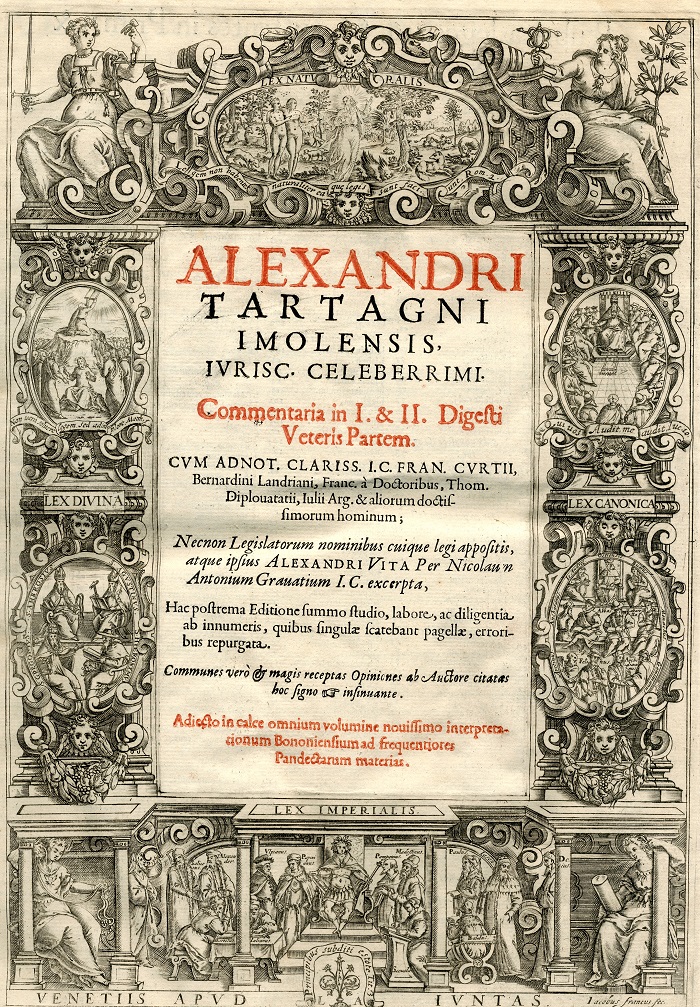 LEX NATURALIS
Legem non habent naturaliter ea quae legis sunt faciunt Rom 2
ALEXANDRI
TARTAGNI
IMOLENSIS,
IVRISC. CELEBERRIMI.
Commentaria in I. & II. Digesti
Veteris Partem.
CVM ADNOT. CLARISS. I.C. FRAN. CVRTII,
Bernardini Landriani, Franc. à Doctoribus, Thom.
Diplouatatii, Iulii Arg. & aliorum doctis-
simorum hominum;
Necnon Legislatorum nominibus cuique legi appositis,
atque ipsius ALEXANDRI VITA Per Nicolaum
Antonium Grauatium I.C. excerpta,
Hac postrema Editione summo studio, labore, ac diligentia
ab innumeris, quibus singulæ scatebant pagellæ, errori-
bus repurgata.
Communes verò & magis receptas Opiniones ab Auctore citatas
hoc signo ☞ insinuante.
Adiecto in calce omnium volumine nouissimo interpreta-
tionum Bononiensium ad frequentiores
Pandectarum materias.
Non veni
Qui vos Audit me audit
LEX DIVINA
LEX CANONICA
LEX IMPERIALIS
Principibus subditi estote
L A
VENETIIS APVD IVNTA
Iacobus francus fec.